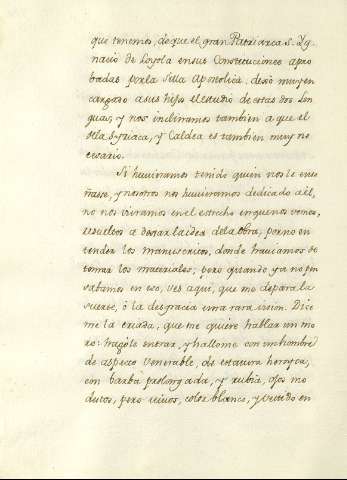 que tenemos, de que el gran Patriarca S. Yg-
nacio de Loyola en sus Constituciones apro
badas por la Silla Apostolica, dexò muy en
cargado a sus hijos el estudio de estas dos len
guas, y nos inclinamos tambien a que el
de la Syriaca, y Caldea es tambien muy ne
cesario.
Si huvieramos tenido quien nos le ense
ñasse, y nosotros nos huvieramos dedicado a èl,
no nos vieramos en el estrecho en que nos vemos,
resueltos a dexar la idea de la obra, por no en
tender los manuscritos, donde haviamos de
tomar los materiales; pero quando ya no pen
sabamos en eso, ves aqui, que me depara la
suerte, ò la desgracia una rara vision. Dice
me la criada, que me quiere hablar un mo
ro: hagole entrar, y hallome con un hombre
de aspecto venerable, de estatura
con barba prolongada, y rubia, ojos mo
destos, pero vivos, color blanco, y vestido en